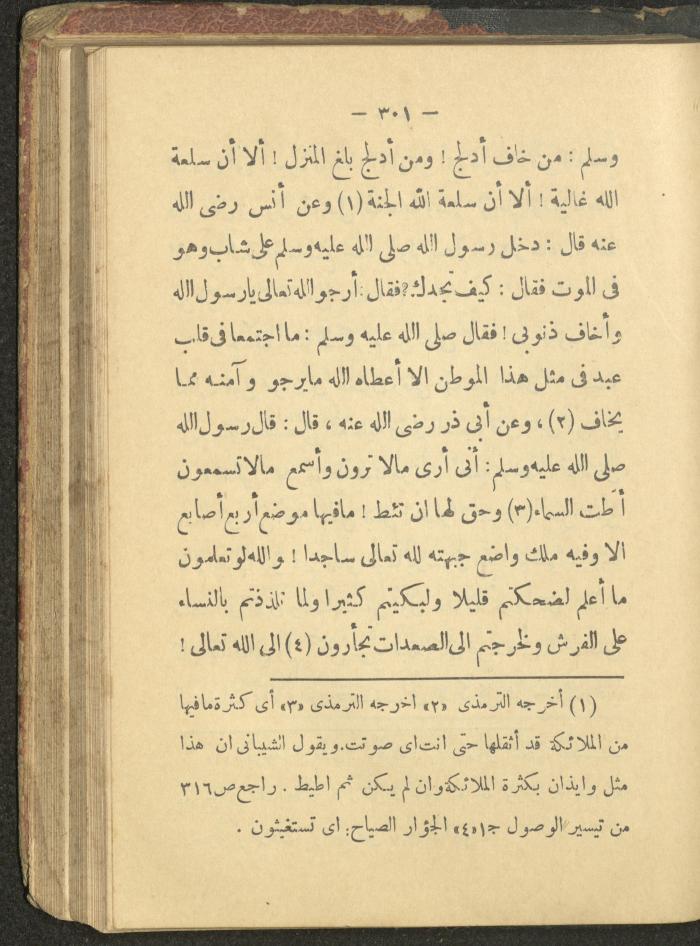 — ٣٠١ —
وسلم : من خاف أدلج ! ومن أدلج بلغ المنزل ! ألا أن سلعة
الله غالية ! ألا أن سلعة الله الجنة (١) وعن أنس رضى الله
عنه قال : دخل رسول الله صلى الله عليه وسلم على شاب وهو
فى الموت فقال : كيف تجدك؟ فقال : أرجو الله تعالى يارسول الله
وأخاف ذنوبى ! فقال صلى الله عليه وسلم : ما اجتمعا فى قلب
عبد فى مثل هذا الموطن الا أعطاه الله مايرجو وآمنه مما
يخاف (٢) ، وعن أبى ذر رضى الله عنه ، قال : قال رسول الله
صلى الله عليه وسلم : أنى أرى مالا ترون وأسمع مالا تسمعون
أطت السماء (٣) وحق لها ان تئط ! مافيها موضع أربع أصابع
الا وفيه ملك واضع جبهته لله تعالى ساجدا ! والله لو تعلمون
ما أعلم لضحكتم قليلا ولبكيتم كثيرا ولما تلذذتم بالنساء
على الفرش ولخرجتم الى الصعدات تجأرون (٤) الى الله تعالى !
(١) أخرجه الترمذى «٢» اخرجه الترمذى «٣» أى كثرة مافيها
من الملائكة قد أثقلها حتى انت اى صوتت. ويقول الشيبانى ان هذا
مثل وايذان بكثرة الملائكة وان لم يكن ثم اطيط . راجع ص ٣١٦
من تيسير الوصول ج١ «٤» الجؤار الصياح : اى تستغيثون .